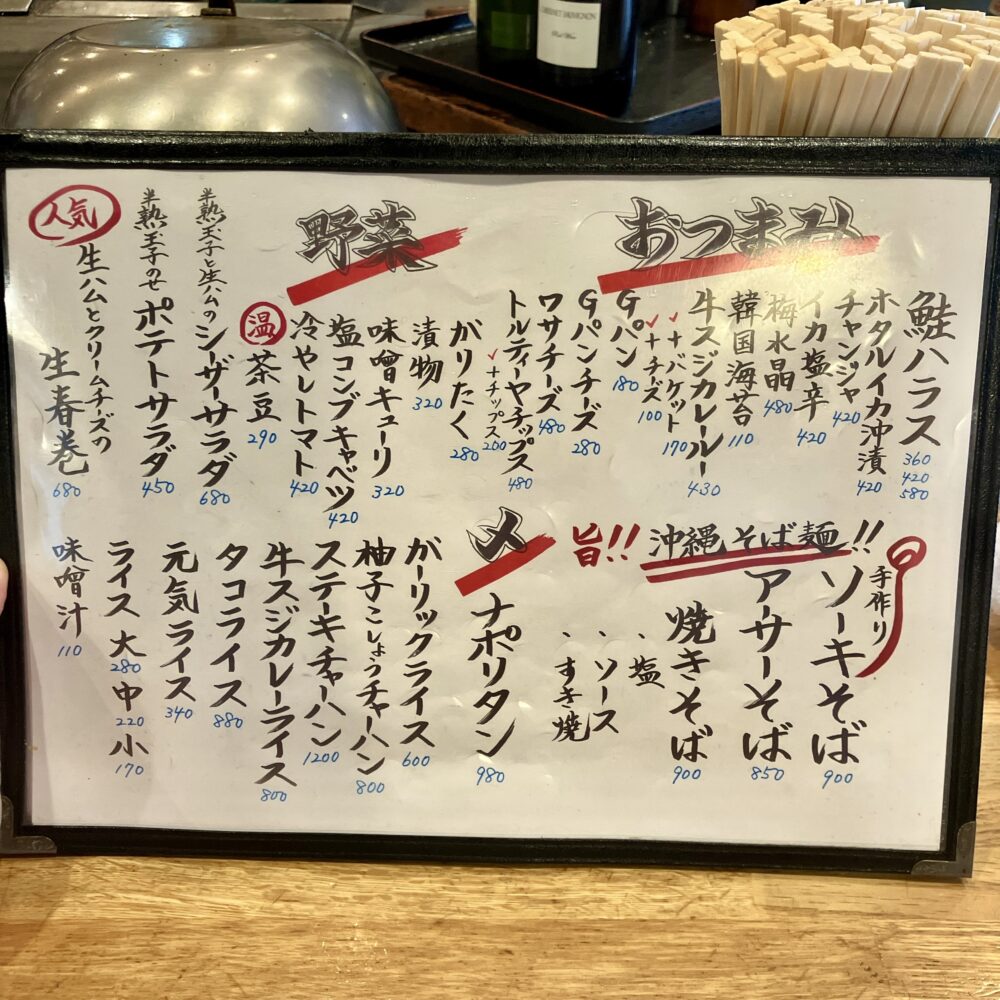 CABERNET SAUVIGNON
Red Wine
おつまみ
鮭ハラス 360 420 580
ホタルイカ沖漬 420
チャンジャ 420
イカ塩辛 420
梅水晶 480
韓国海苔 110
牛スジカレールー 430
✓+バケット 170
✓+チーズ 100
Gパン 180
Gパンチーズ 280
ワサチーズ 480
✓+チップス
トルティーヤチップス 480
がりたく 280
漬物 320
野菜
味噌キューリ 320
塩コンブキャベツ 420
冷やしトマト 420
温 茶豆 290
半熟玉子と生ハムの
シーザーサラダ 680
半熟玉子のせ
ポテトサラダ 450
人気
生ハムとクリームチーズの
生春巻 680
旨!! 沖縄そば麺!!
手作り
ソーキそば 900
アーサーそば 850
焼きそば 900
、塩
、ソース
、すき焼
〆
ナポリタン 980
ガーリックライス 600
柚子こしょうチャーハン 800
ステーキチャーハン 1200
牛スジカレーライス 800
タコライス 880
元気ライス 340
ライス 大 280 中 220 小 170
味噌汁 110